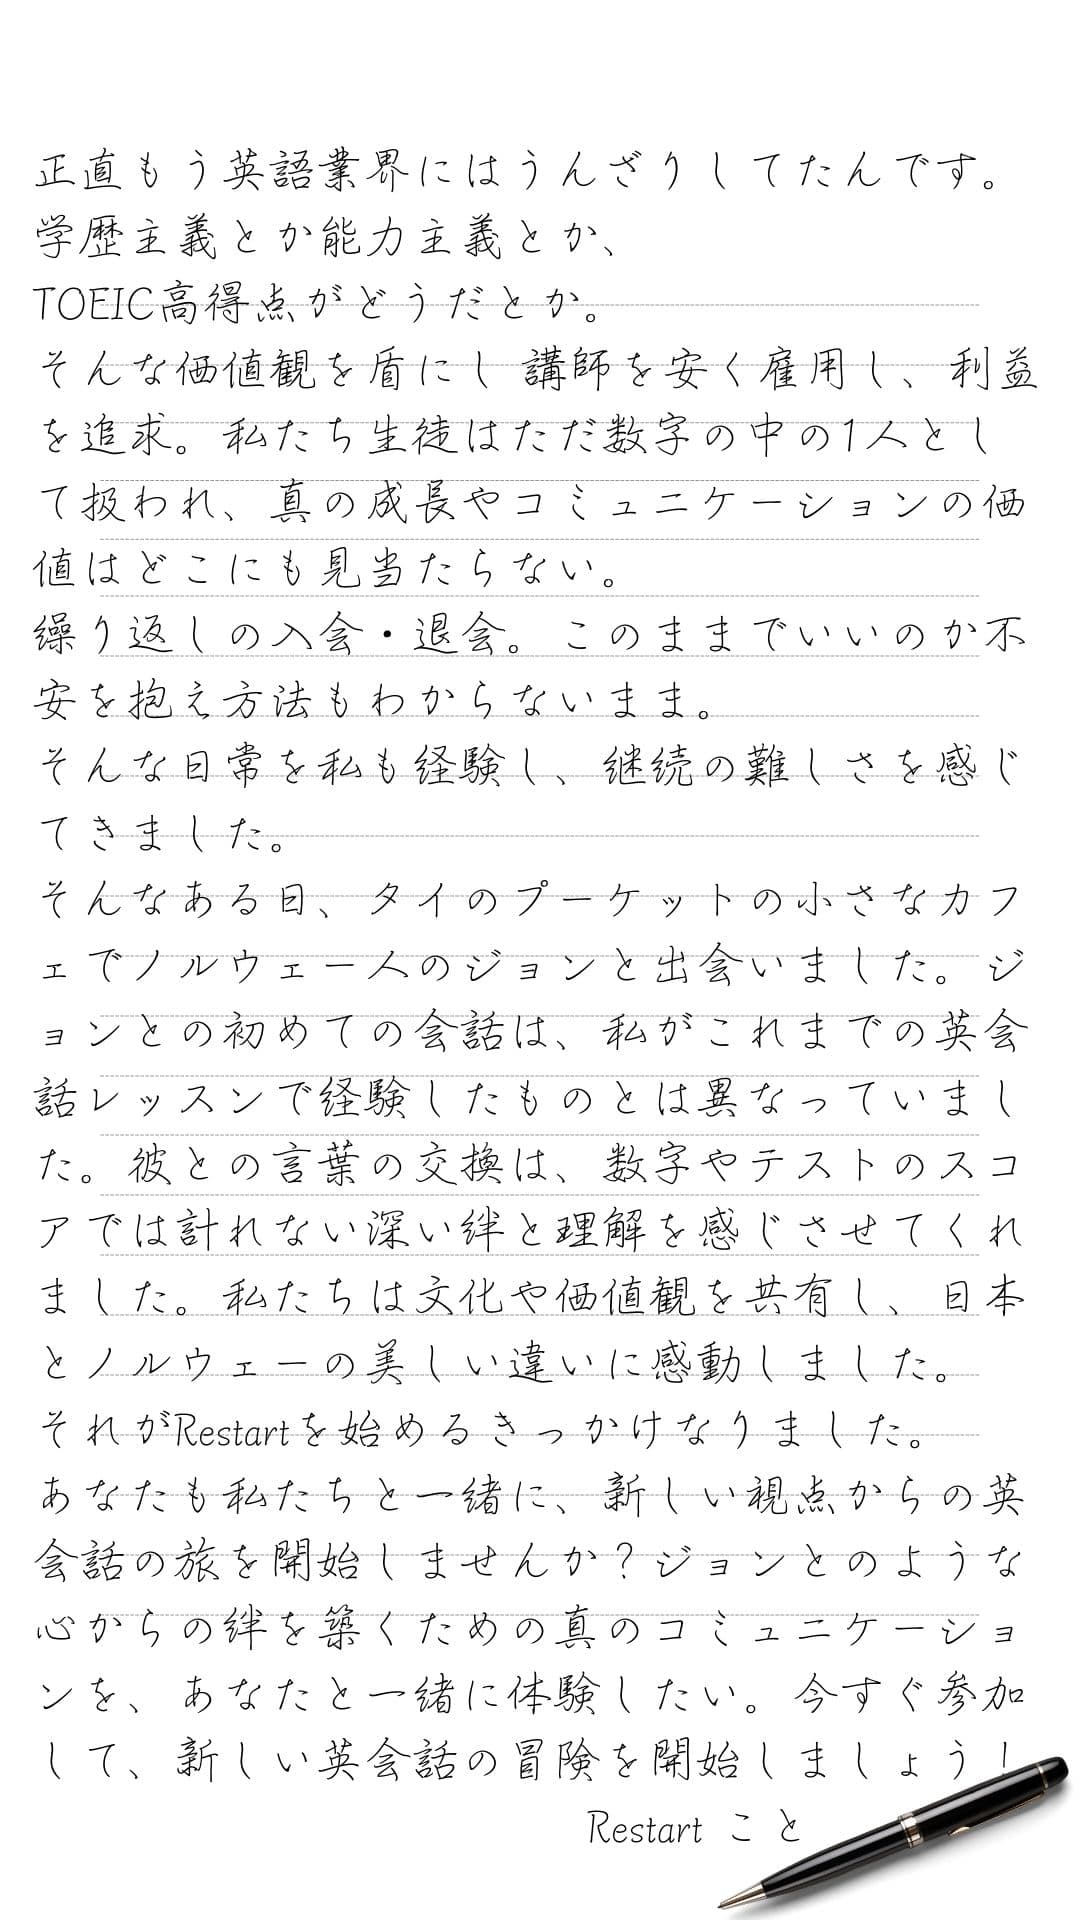 正直もう英語業界にはうんざりしてたんです。
学歴主義とか能力主義とか、
TOEIC高得点がどうだとか。
そんな価値観を盾にし 講師を安く雇用し、利益
を追求。私たち生徒はただ数字の中の1人とし
て扱われ、真の成長やコミュニケーションの価
値はどこにも見当たらない。
繰り返しの入会・退会。このままでいいのか不
安を抱え方法もわからないまま。
そんな日常を私も経験し、継続の難しさを感じ
てきました。
そんなある日、タイのプーケットの小さなカフ
ェでノルウェー人のジョンと出会いました。ジ
ョンとの初めての会話は、私がこれまでの英会
話レッスンで経験したものとは異なっていまし
た。彼との言葉の交換は、数字やテストのスコ
アでは計れない深い絆と理解を感じさせてくれ
ました。私たちは文化や価値観を共有し、日本
とノルウェーの美しい違いに感動しました。
それがRestartを始めるきっかけなりました。
あなたも私たちと一緒に、新しい視点からの英
会話の旅を開始しませんか？ジョンとのような
心からの絆を築くための真のコミュニケーショ
ンを、あなたと一緒に体験したい。今すぐ参加
して、新しい英会話の冒険を開始しましょう！
Restart こと